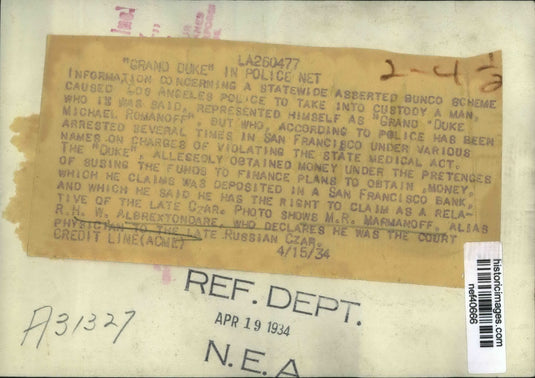 LA260477
"GRAND DUKE" IN POLICE NET
INFORMATION CONCERNING A STATEWIDE ASSERTED BUNCO SCHEME
CAUSED LOS ANGELES POLICE TO TAKE INTO CUSTODY A MAN,
WHO IS WAS SAID, REPRESENTED HIMSELF AS "GRAND "DUKE
MICHAEL ROMANOFF", BUT WHO, ACCORDING TO POLICE HAS BEEN
ARRESTED SEVERAL TIMES IN SAN FRANCISCO UNDER VARIOUS
NAMES ON CHARGES OF VIOLATING THE STATE MEDICAL ACT.
THE "DUKE", ALLEGEDLY OBTAINED MONEY UNDER THE PRETENCES
OF SUSING THE FUNDS TO FINANCE PLANS TO OBTAIN MONEY,
WHICH HE CLAIMS WAS DEPOSITED IN A SAN FRANCISCO BANK,
AND WHICH HE SAID HE HAS THE RIGHT TO CLAIM AS A RELA-
TIVE OF THE LATE CZAR. PHOTO SHOWS M.R. MARMANOFF, ALIAS
R.H. W. ALBREXTONDARE, WHO DECLARES HE WAS THE COURT
PHYSICIAN TO THE LATE RUSSIAN CZAR.
CREDIT LINE(ACME) 4/15/34
REF. DEPT.
APR 19 1934
N.E.A
A31327
historicimages.com
nef40666